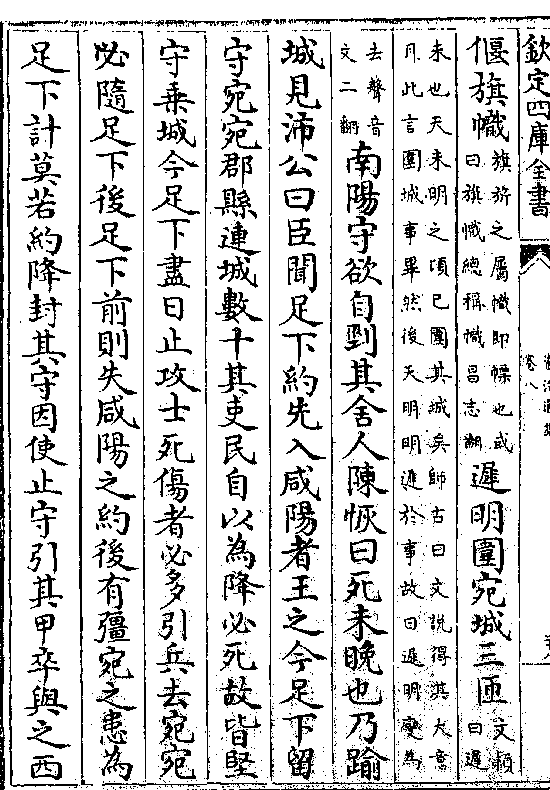 欽定四庫全書
卷八
偃旗幟旗旂之屬幟即幖也或曰旗幟總稱幟昌志翻遲明圍宛城三匝文穎曰遲
未也天未明之頃已圍其城矣師古曰文說得其大意
耳此言圍城事畢然後天明明遲於事故曰遲明變為
去聲音文二翻南陽守欲自剄其舍人陳恢曰死未晚也乃踰
城見沛公曰臣聞足下約先入咸陽者王之今足下留
守宛宛郡縣連城數十其吏民自以為降必死故皆堅
守乗城今足下盡日止攻士死傷者必多引兵去宛宛
必隨足下後足下前則失咸陽之約後有彊宛之患為
足下計莫若約降封其守因使止守引其甲卒與之西